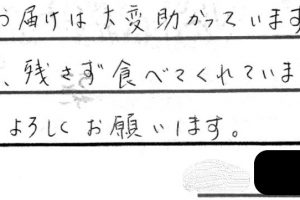 お届けは大変助かっています
、残さず食べてくれていま
よろしくお願いします。